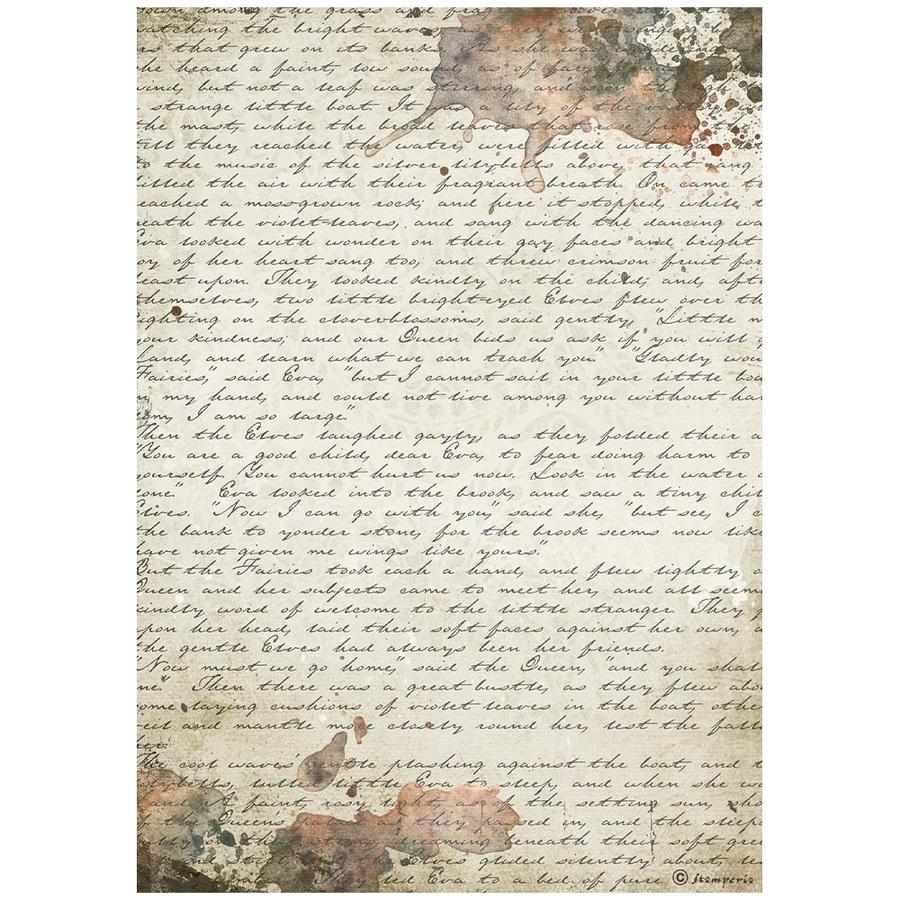 down among the grass and fra
watching the bright wave
rs that grew on its banks As she was
he heard a faint, low sound, as of far
wind, but not a leaf was stirring, and soon
strange little boat. It was a lily of the
the mast, while the broad leaves that rose from the
till they reached the water, were filled with
to the music of the silver lilybells above, that rang
filled the air with their fragrant breath. On came t
eached a moss-grown rock; and here it stopped, while t
eath the violet-leaves, and sang with the dancing wa
Eva looked with wonder on their gay faces and bright
oy of her heart sang too, and threw crimson fruit for
east upon. They looked kindly on the child, and, afte
themselves, two little bright-eyed Elves flew over th
ighting on the clover-blossoms, said gently, "Little m
your kindness; and our Queen bids us ask if you will g
Land, and learn what we can teach you." "Gladly wou
Fairies," said Eva, "but I cannot sail in your little boa
n my hand, and could not live among you without har
I am so large."
Then the Elves laughed gayly, as they folded their a
"You are a good child, dear Eva, to fear doing harm to
yourself. You cannot hurt us now. Look in the water a
one." Eva looked into the brook, and saw a tiny chil
Elves. "Now I can go with you," said she, "but see, I c
the bank to yonder stone, for the brook seems now like
have not given me wings like yours."
But the Fairies took each a hand, and flew lightly o
Queen and her subjects came to meet her, and all seem
kindly word of welcome to the little stranger. They p
upon her head, laid their soft faces against her own, a
the gentle Elves had always been her friends.
"Now must we go home," said the Queen, "and you shal
me." Then there was a great bustle, as they flew abo
ome laying cushions of violet leaves in the boat, othe
veil and mantle more closely round her, lest the falli
her.
The cool waves' gentle plashing against the boat, and t
lilybells, lulled little Eva to sleep, and when she w
faint, rosy light, as of the setting sun, sho
the Queen's as they passed in, and the sleepi
dreaming beneath their soft gree
and still Elves glided silently about, le
They led Eva to a bed of pure
© stamperia